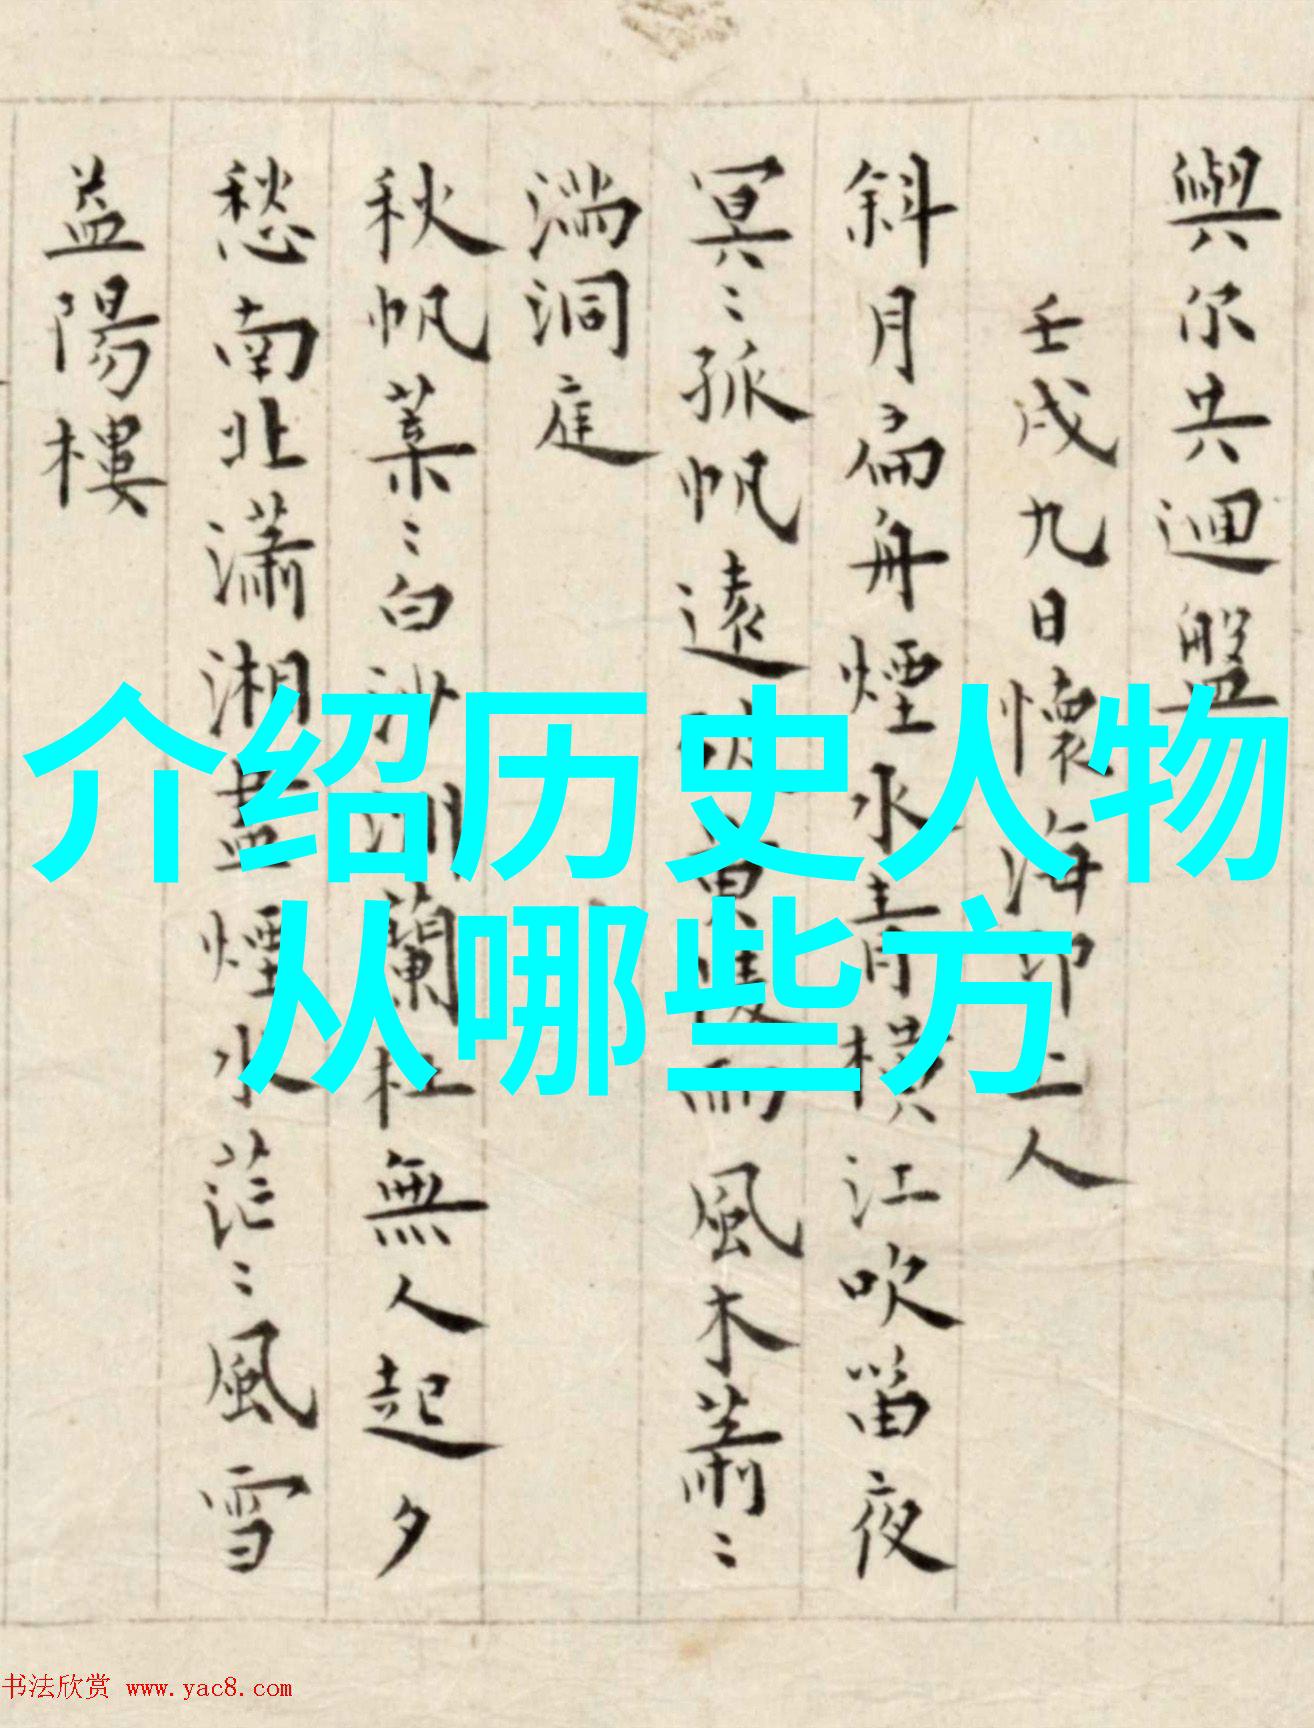 與尔共迴盤
壬戌九日懷海印上人
斜月扁舟煙水青横江吹笛夜
冥〻孤帆遠 風木蕭〻
湍洞庭
秋帆葉〻白沙洲蘭杜無人起夕
愁南北瀟湘盡煙水茫〻風雪
益陽樓
介绍历史人物
从哪些方
书法欣赏 www.yac8.com